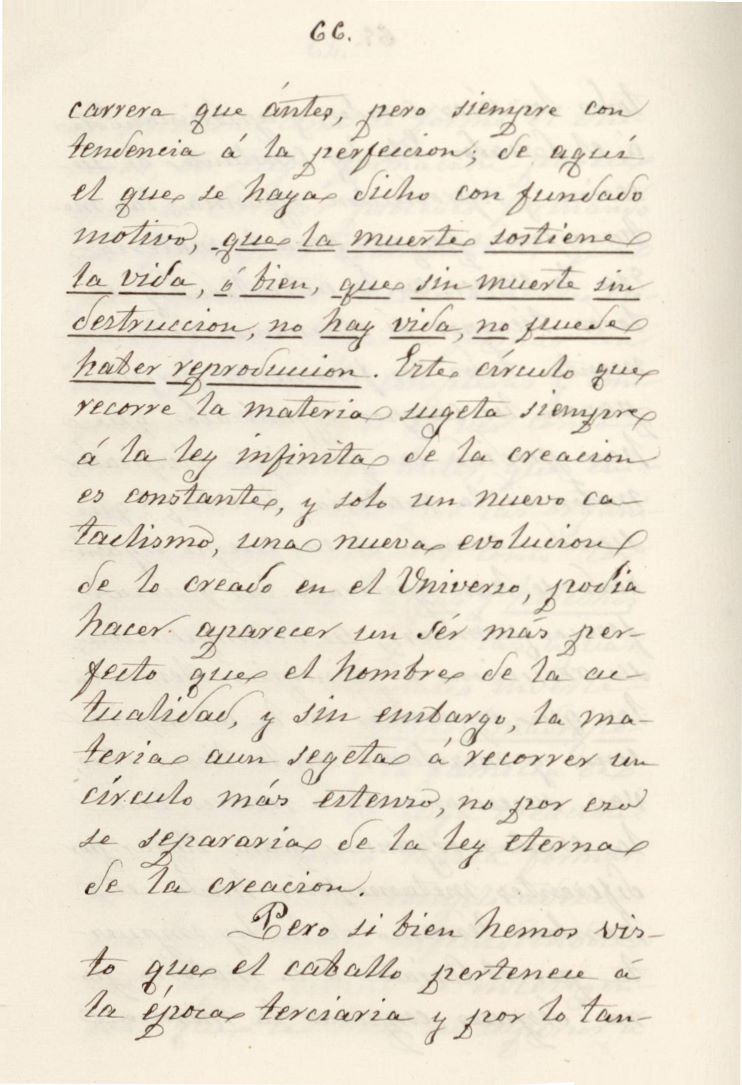 66.
carrera que ántes, pero siempre con
tendencia á la perfeccion; de aquí
el que se haya dicho con fundado
motivo, que la muerte sostiene
la vida, ó bien, que sin muerte sin
destruccion, no hay vida, no puede
haber reproduccion. Este círculo que
recorre la materia sugeta siempre
á la ley infinita de la creacion
es constante, y solo un nuevo ca-
taclismo, una nueva evolucion
de lo creado en el Universo, podia
hacer aparecer un sér más per-
fecto que el hombre de la ac-
tualidad, y sin embargo, la ma-
teria aun segeta á recorrer un
círculo más estenso, no por eso
se separaria de la ley eterna
de la creacion.
Pero si bien hemos vis-
to que el caballo pertenece á
la época terciaria y por lo tan-